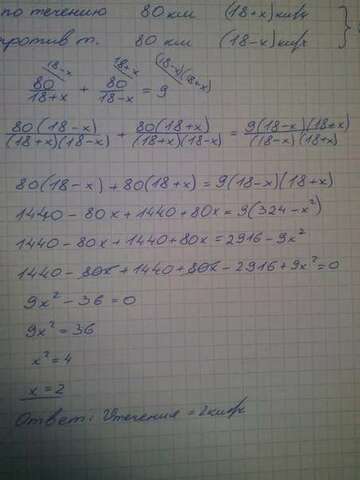 по течению 80 км (18+x) км/ч
против т. 80 км (18-x) км/ч
80/(18+x) + 80/(18-x) = 9
18-x 18+x (18-x)(18+x)
80(18-x)/((18+x)(18-x)) + 80(18+x)/((18+x)(18-x)) = 9(18-x)(18+x)/((18-x)(18+x))
80(18-x)+80(18+x)=9(18-x)(18+x)
1440-80x+1440+80x=9(324-x²)
1440-80x+1440+80x=2916-9x²
1440-80x+1440+80x-2916+9x²=0
9x²-36=0
9x²=36
x²=4
x=2
Ответ: Vтечения = 2км/ч